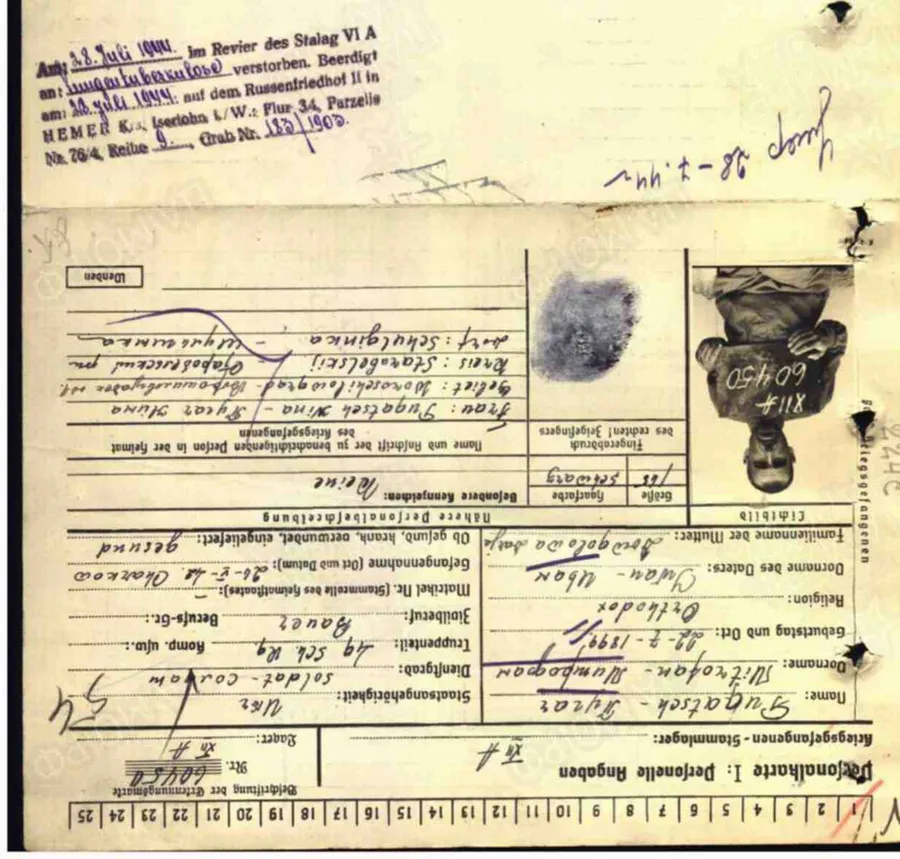 Am: 28. Juli 1944. Im Revier des Stalag VI A
an: Lungentuberkulose verstorben. Beerdigt
am: 28. Juli 1944. auf dem Russenfriedhof II in
HEMER Krs. Iserlohn i./W.: Flur 34, Parzelle
Nr. 76/4, Reihe 9., Grab Nr. 183/1903.
28-7.44
1 2 3 4 5 6 7 8 9 10 11 12 13 14 15 16 17 18 19 20 21 22 23 24 25
Personalkarte I: Personelle Angaben
Kriegsgefangenen-Stammlager: XII A
Beschriftung der Erkennungsmarke
Nr. 60450
Lager: XII A
Name: Pugatsch - Пугач
Vorname: Mitrofan - Митрофан
Geburtstag und Ort: 22-7-1899
Religion: Orthodox
Vorname des Vaters: Iwan - Иван
Familienname der Mutter:
Staatsangehörigkeit: Ukr
Dienstgrad: soldat - солдат
Truppenteil: Komp. usw.:
Zivilberuf: Bauer Berufs-Gr.:
Matrikel Nr. (Stammrolle des Heimatstaates): -
Gefangennahme (Ort und Datum): Charkow
Ob gesund, krank, verwundet, eingeliefert: gesund
Lichtbild
Nähere Personalbeschreibung
Größe Haarfarbe Besondere Kennzeichen:
165 schwarz Keine
Fingerabdruck
des rechten! Zeigefingers
Name und Anschrift der zu benachrichtigenden Person in der Heimat
des Kriegsgefangenen
Frau: Pugatsch Nina - Пугач Нина
Gebiet: Woroschilowgrad -
Kreis: Starobelskij -
Dorf: Schulginka - Шульгинка
Wenden
XII A
60450